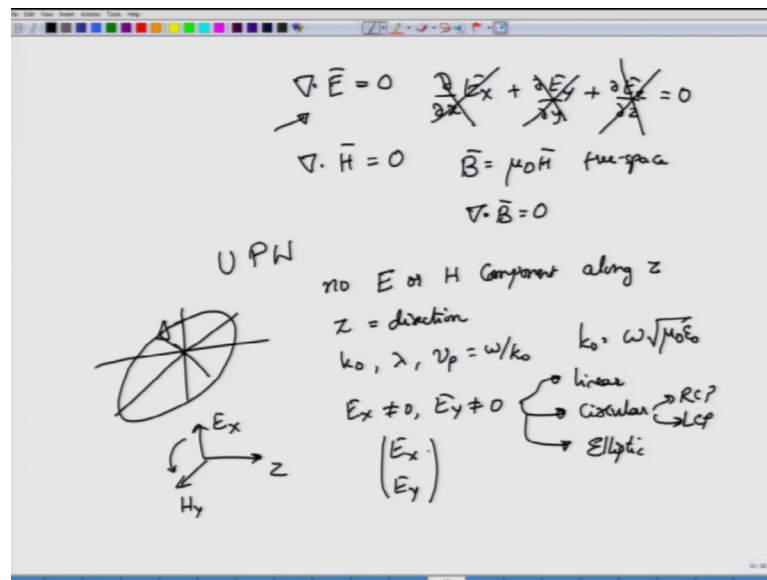 File Edit View Insert Actions Tools Help
∇. E̅ = 0   ∂/∂x E̅x + ∂E̅y/∂y + ∂E̅z/∂z = 0
∇. H̅ = 0   B̅ = μ0H̅   free-space
∇. B̅ = 0
UPW
no E or H Component along z
z = direction
k0, λ, νp = ω/k0   k0 = ω√μ0ε0
Ex ≠ 0, Ey ≠ 0
linear
Circular
RCP
LCP
Elliptic
(Ex
Ey)
Ex
z
Hy